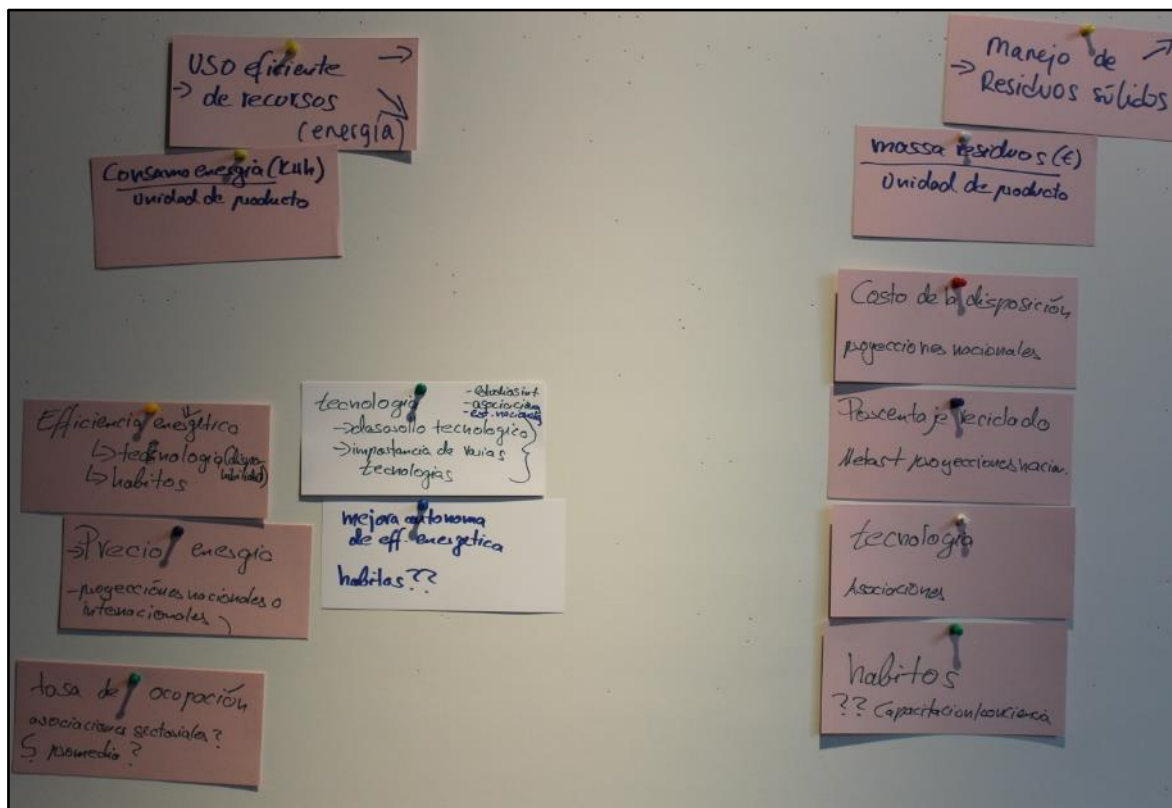 USO eficiente →
→ de recursos
(energía)
Consumo energía (Kwh)
Unidad de producto
Efficiencia energética
↳ tecnologia (disponibilidad)
↳ habitos
→ Precio energia
- proyecciónes nacionales o
internacionales
tasa de ocopación
asociaciones sectoriales?
↳ promedio?
tecnologia
- estudios int.
- asociaciones
- est. nacionales
→ desarollo tecnologico
→ importancia de varias
tecnologias
mejora autonoma
de eff. energetica
habitas??
Manejo de
→ Residuos súlidos
massa residuos (t)
Unidad de producto
Costo de la disposición
proyecciones nacionales
Porcentaje reciclado
Metas + proyecciones nacion.
tecnologia
Asociaciones
habitos
?? Capacitacion/conciencia